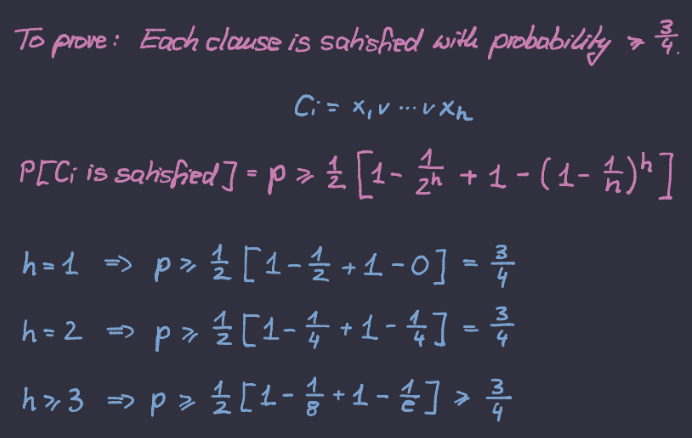 To prove: Each clause is satisfied with probability ≥ 3/4.
Ci = x₁ ∨ ... ∨ xₕ
P[Ci is satisfied] = p ≥ 1/2 [1 - 1/2ʰ + 1 - (1 - 1/h)ʰ]
h = 1 => p ≥ 1/2 [1 - 1/2 + 1 - 0] = 3/4
h = 2 => p ≥ 1/2 [1 - 1/4 + 1 - 1/4] = 3/4
h ≥ 3 => p ≥ 1/2 [1 - 1/8 + 1 - 1/e] ≥ 3/4